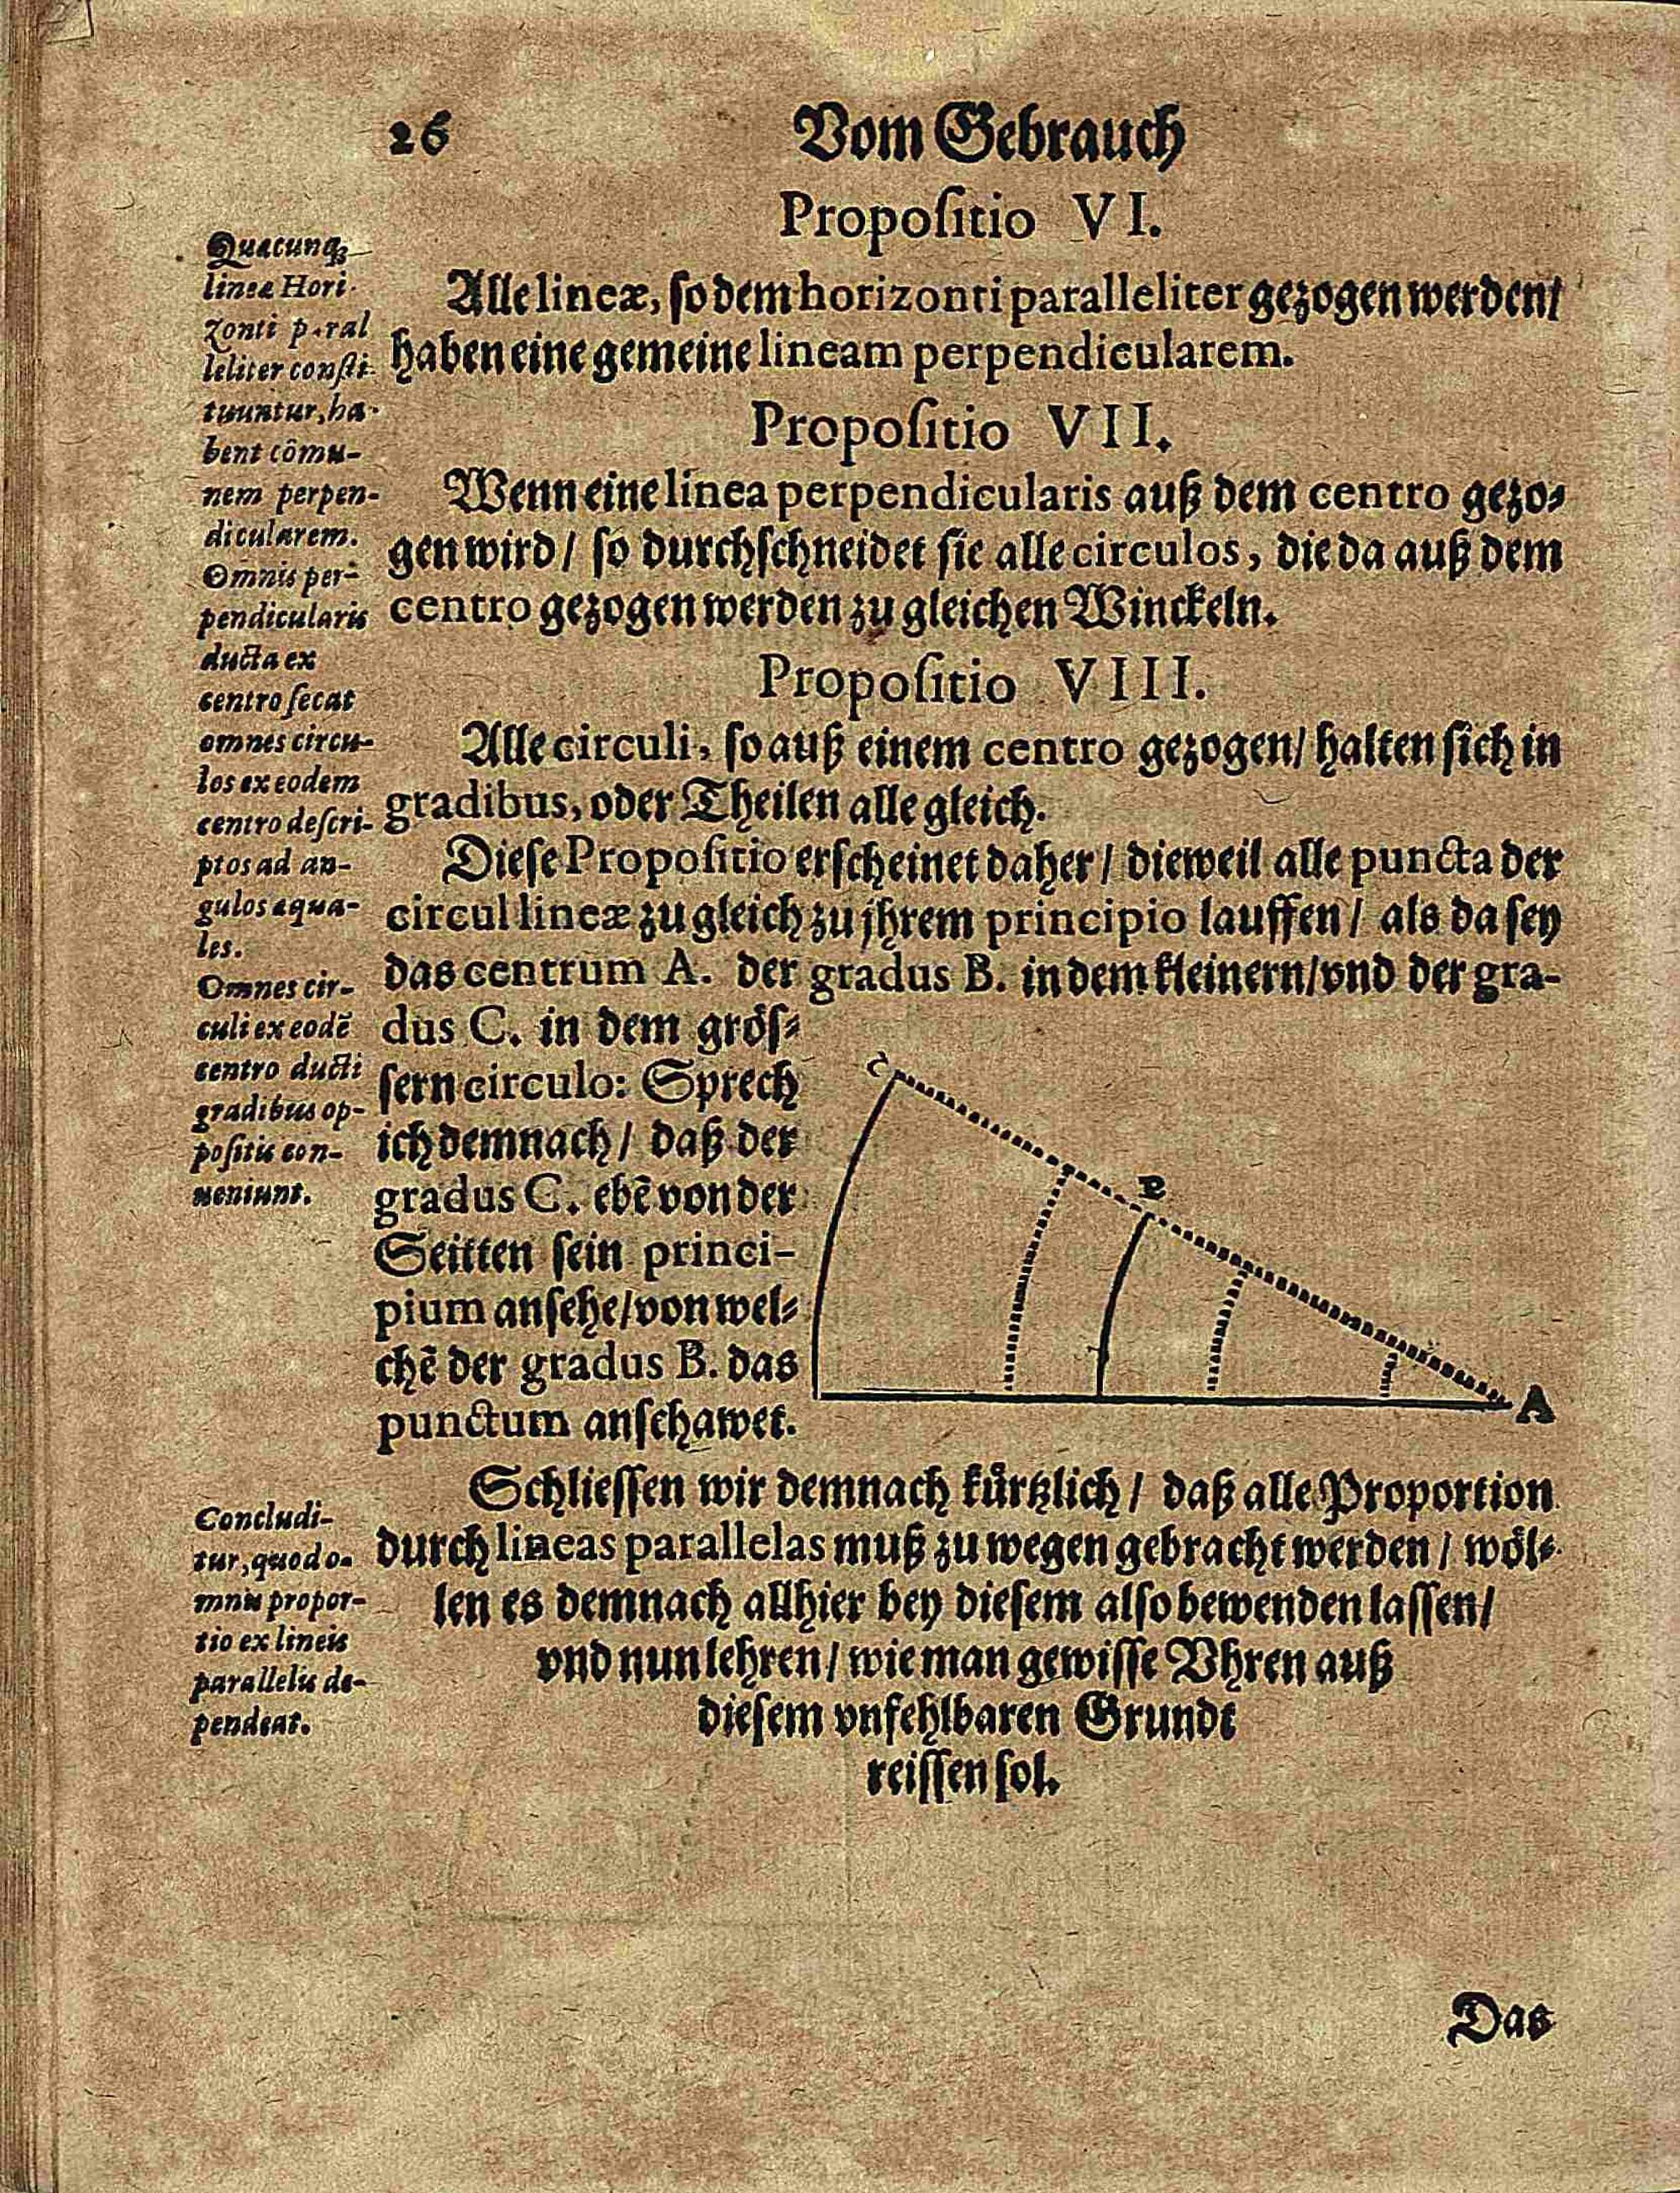 26
Vom Gebrauch
Propoſitio VI.
Alle lineæ, ſo dem horizonti paralleliter gezogen werden/
haben eine gemeine lineam perpendicularem.
Propoſitio VII.
Wenn eine linea perpendicularis auß dem centro gezo⸗
gen wird / ſo durchſchneidet ſie alle circulos, die da auß dem
centro gezogen werden zu gleichen Winckeln.
Propoſitio VIII.
Alle circuli, ſo auß einem centro gezogen/ halten ſich in
gradibus, oder Theilen alle gleich.
Dieſe Propoſitio erſcheinet daher / dieweil alle puncta der
circul lineæ zu gleich zu jhrem principio lauffen / als da ſey
das centrum A. der gradus B. in dem kleinern/vnd der gra-
dus C. in dem gröſ⸗
ſern circulo: Sprech
ich demnach / daß der
gradus C. ebẽ von der
Seitten ſein princi-
pium anſehe/von wel⸗
chẽ der gradus B. das
punctum anſchawet.
C
B
A
Schlieſſen wir demnach kürtzlich / daß alle Proportion
durch lineas parallelas muß zu wegen gebracht werden / wöl⸗
len es demnach allhier bey dieſem alſo bewenden laſſen/
vnd nun lehren / wie man gewiſſe Vhren auß
dieſem vnfehlbaren Grundt
reiſſen ſol.
Quacunq;
lineæ Hori-
zonti paral
leliter conſti-
tuuntur, ha-
bent cõmu-
nem perpen-
dicularem.
Omnis per-
pendicularis
ducta ex
centro ſecat
omnes circu-
los ex eodem
centro deſcri-
ptos ad an-
gulos æqua-
les.
Omnes cir-
culi ex eodẽ
centro ducti
gradibus op-
poſitis con-
ueniunt.
Concludi-
tur, quod o-
mnis propor-
tio ex lineis
parallelis de-
pendeat.
Das